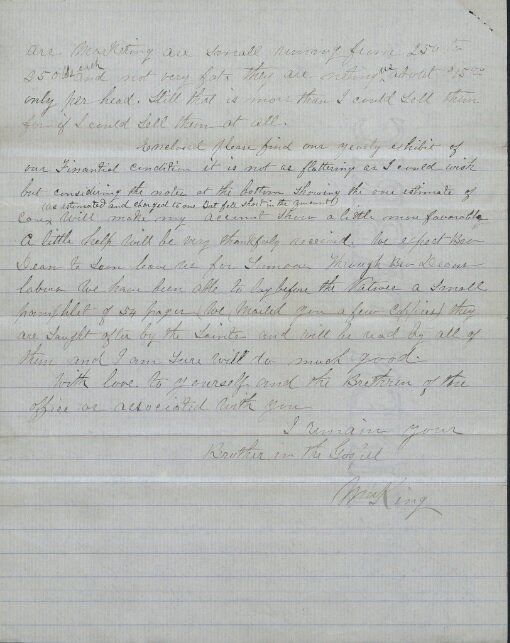 are Marketing are small runing from 250 to
350 lb each and not very fat they are neting us about $15.00
only per head. Still that is more than I could sell them
for if I could sell them at all.
Enclosed please find our yearly exhibit of
our Financial condition it is not as flattering as I could wish
but considering the notes at the bottom showing the one estimate of
(as estimated and charged to one but fell short in the amount)
Cane Will make my account show a little more favorable
A little help will be very thankfully received. We expect Bro
Dean to soon leave us for Samoa Through Bro Deans
labors We have been able to lay before the Natives a Small
pamphlet of 54 pages We Mailed you a few Coppies they
are Saught after by the Saints and will be read by all of
them and I am Sure will do much good.
With love to yourself and the Brethren of the
office or associated with you
I remain your
Brother in the Gospel
Wm King